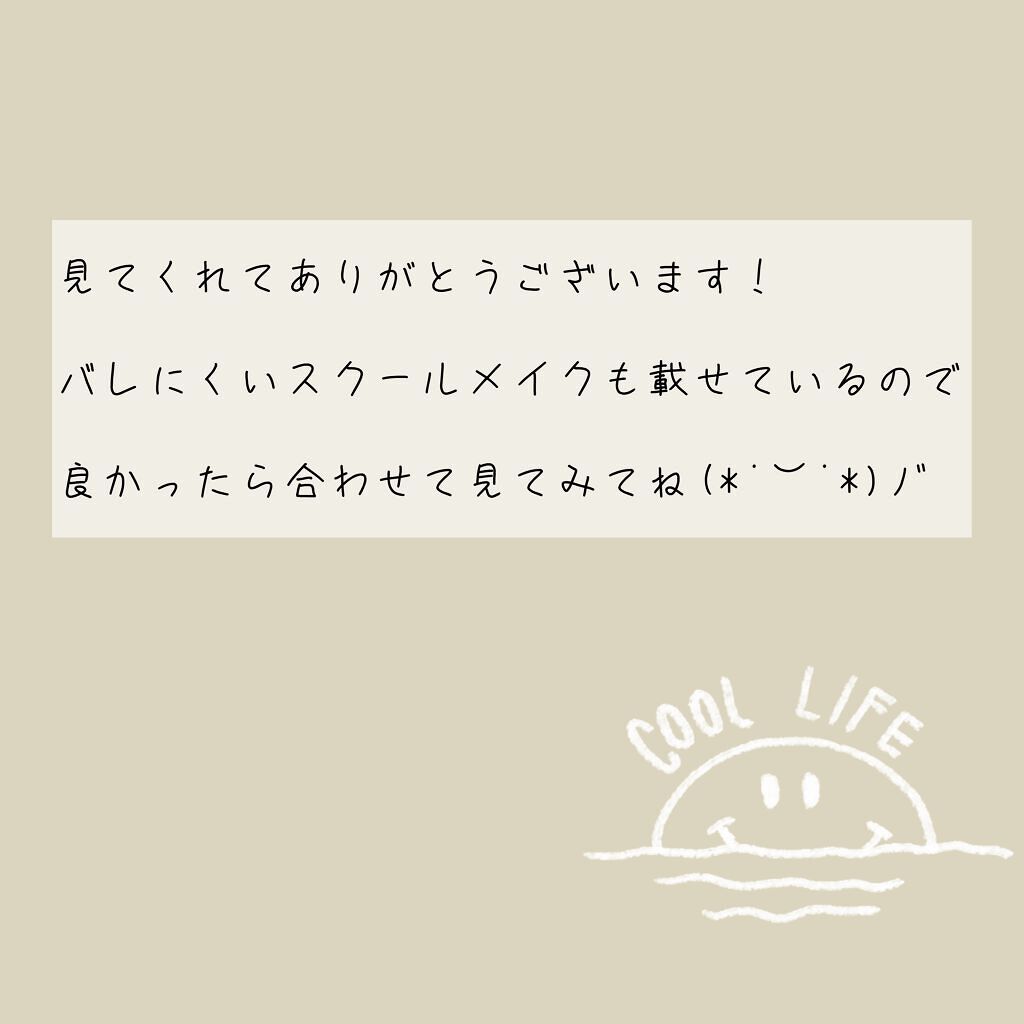 見てくれてありがとうございます！
バレにくいスクールメイクも載せているので
良かったら合わせて見てみてね(*˙︶˙*)ﾉﾞ
COOL LIFE